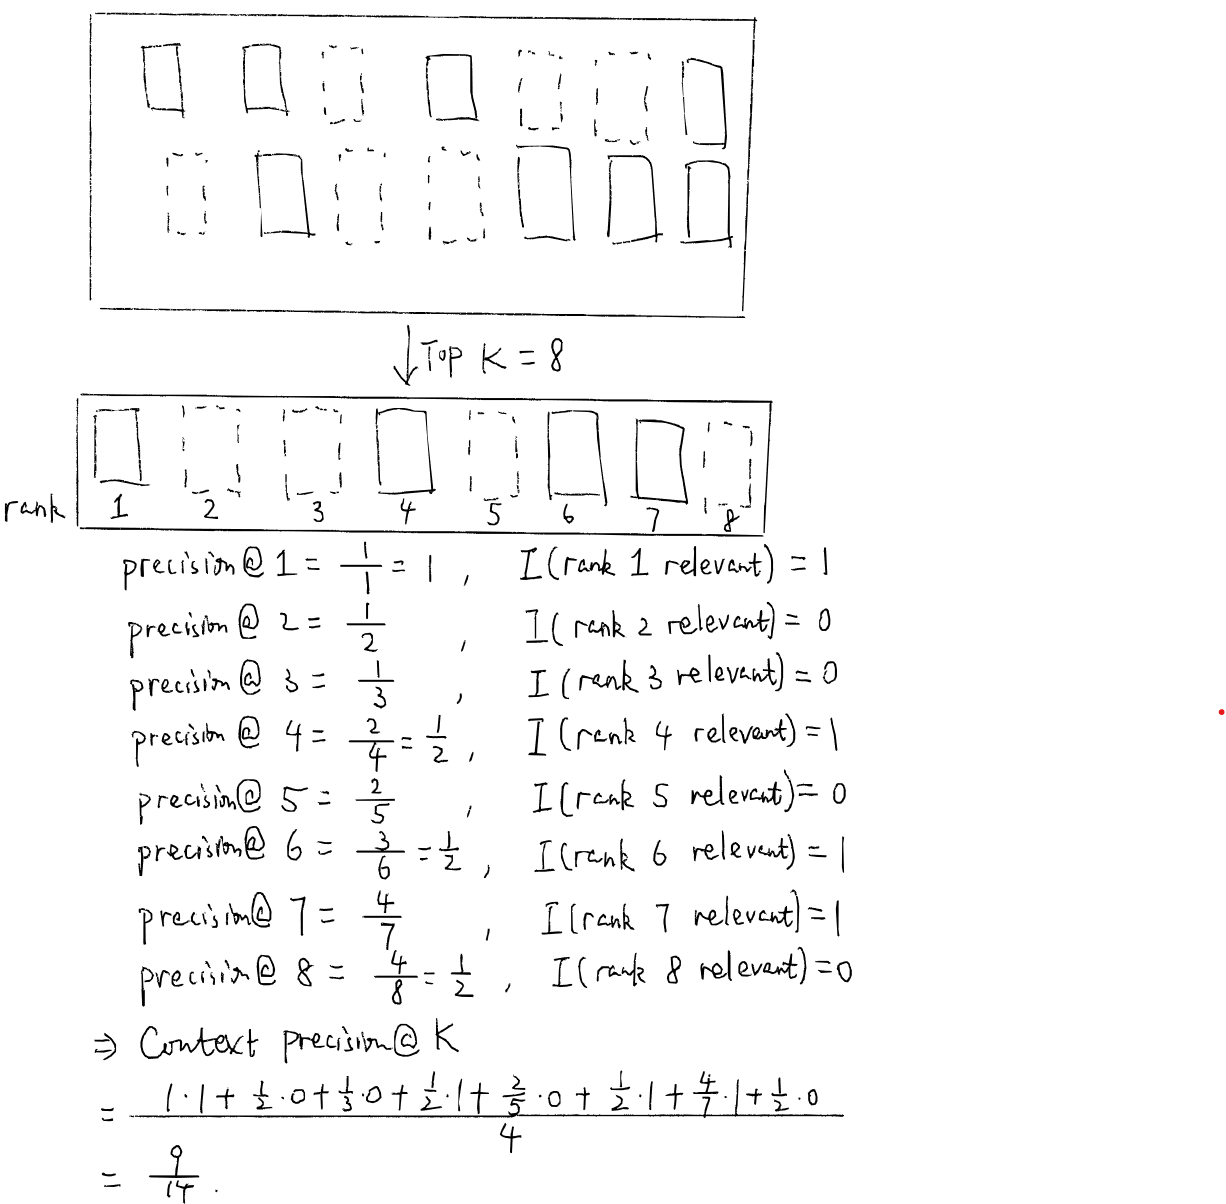 ↓ Top K = 8
rank 1 2 3 4 5 6 7 8
precision@ 1 = 1/1 = 1 , I(rank 1 relevant) = 1
precision@ 2 = 1/2 , I(rank 2 relevant) = 0
precision@ 3 = 1/3 , I(rank 3 relevant) = 0
precision@ 4 = 2/4 = 1/2 , I(rank 4 relevant) = 1
precision@ 5 = 2/5 , I(rank 5 relevant) = 0
precision@ 6 = 3/6 = 1/2 , I(rank 6 relevant) = 1
precision@ 7 = 4/7 , I(rank 7 relevant) = 1
precision@ 8 = 4/8 = 1/2 , I(rank 8 relevant) = 0
⇒ Context precision@ K
= (1·1 + 1/2·0 + 1/3·0 + 1/2·1 + 2/5·0 + 1/2·1 + 4/7·1 + 1/2·0) / 4
= 9/14 .